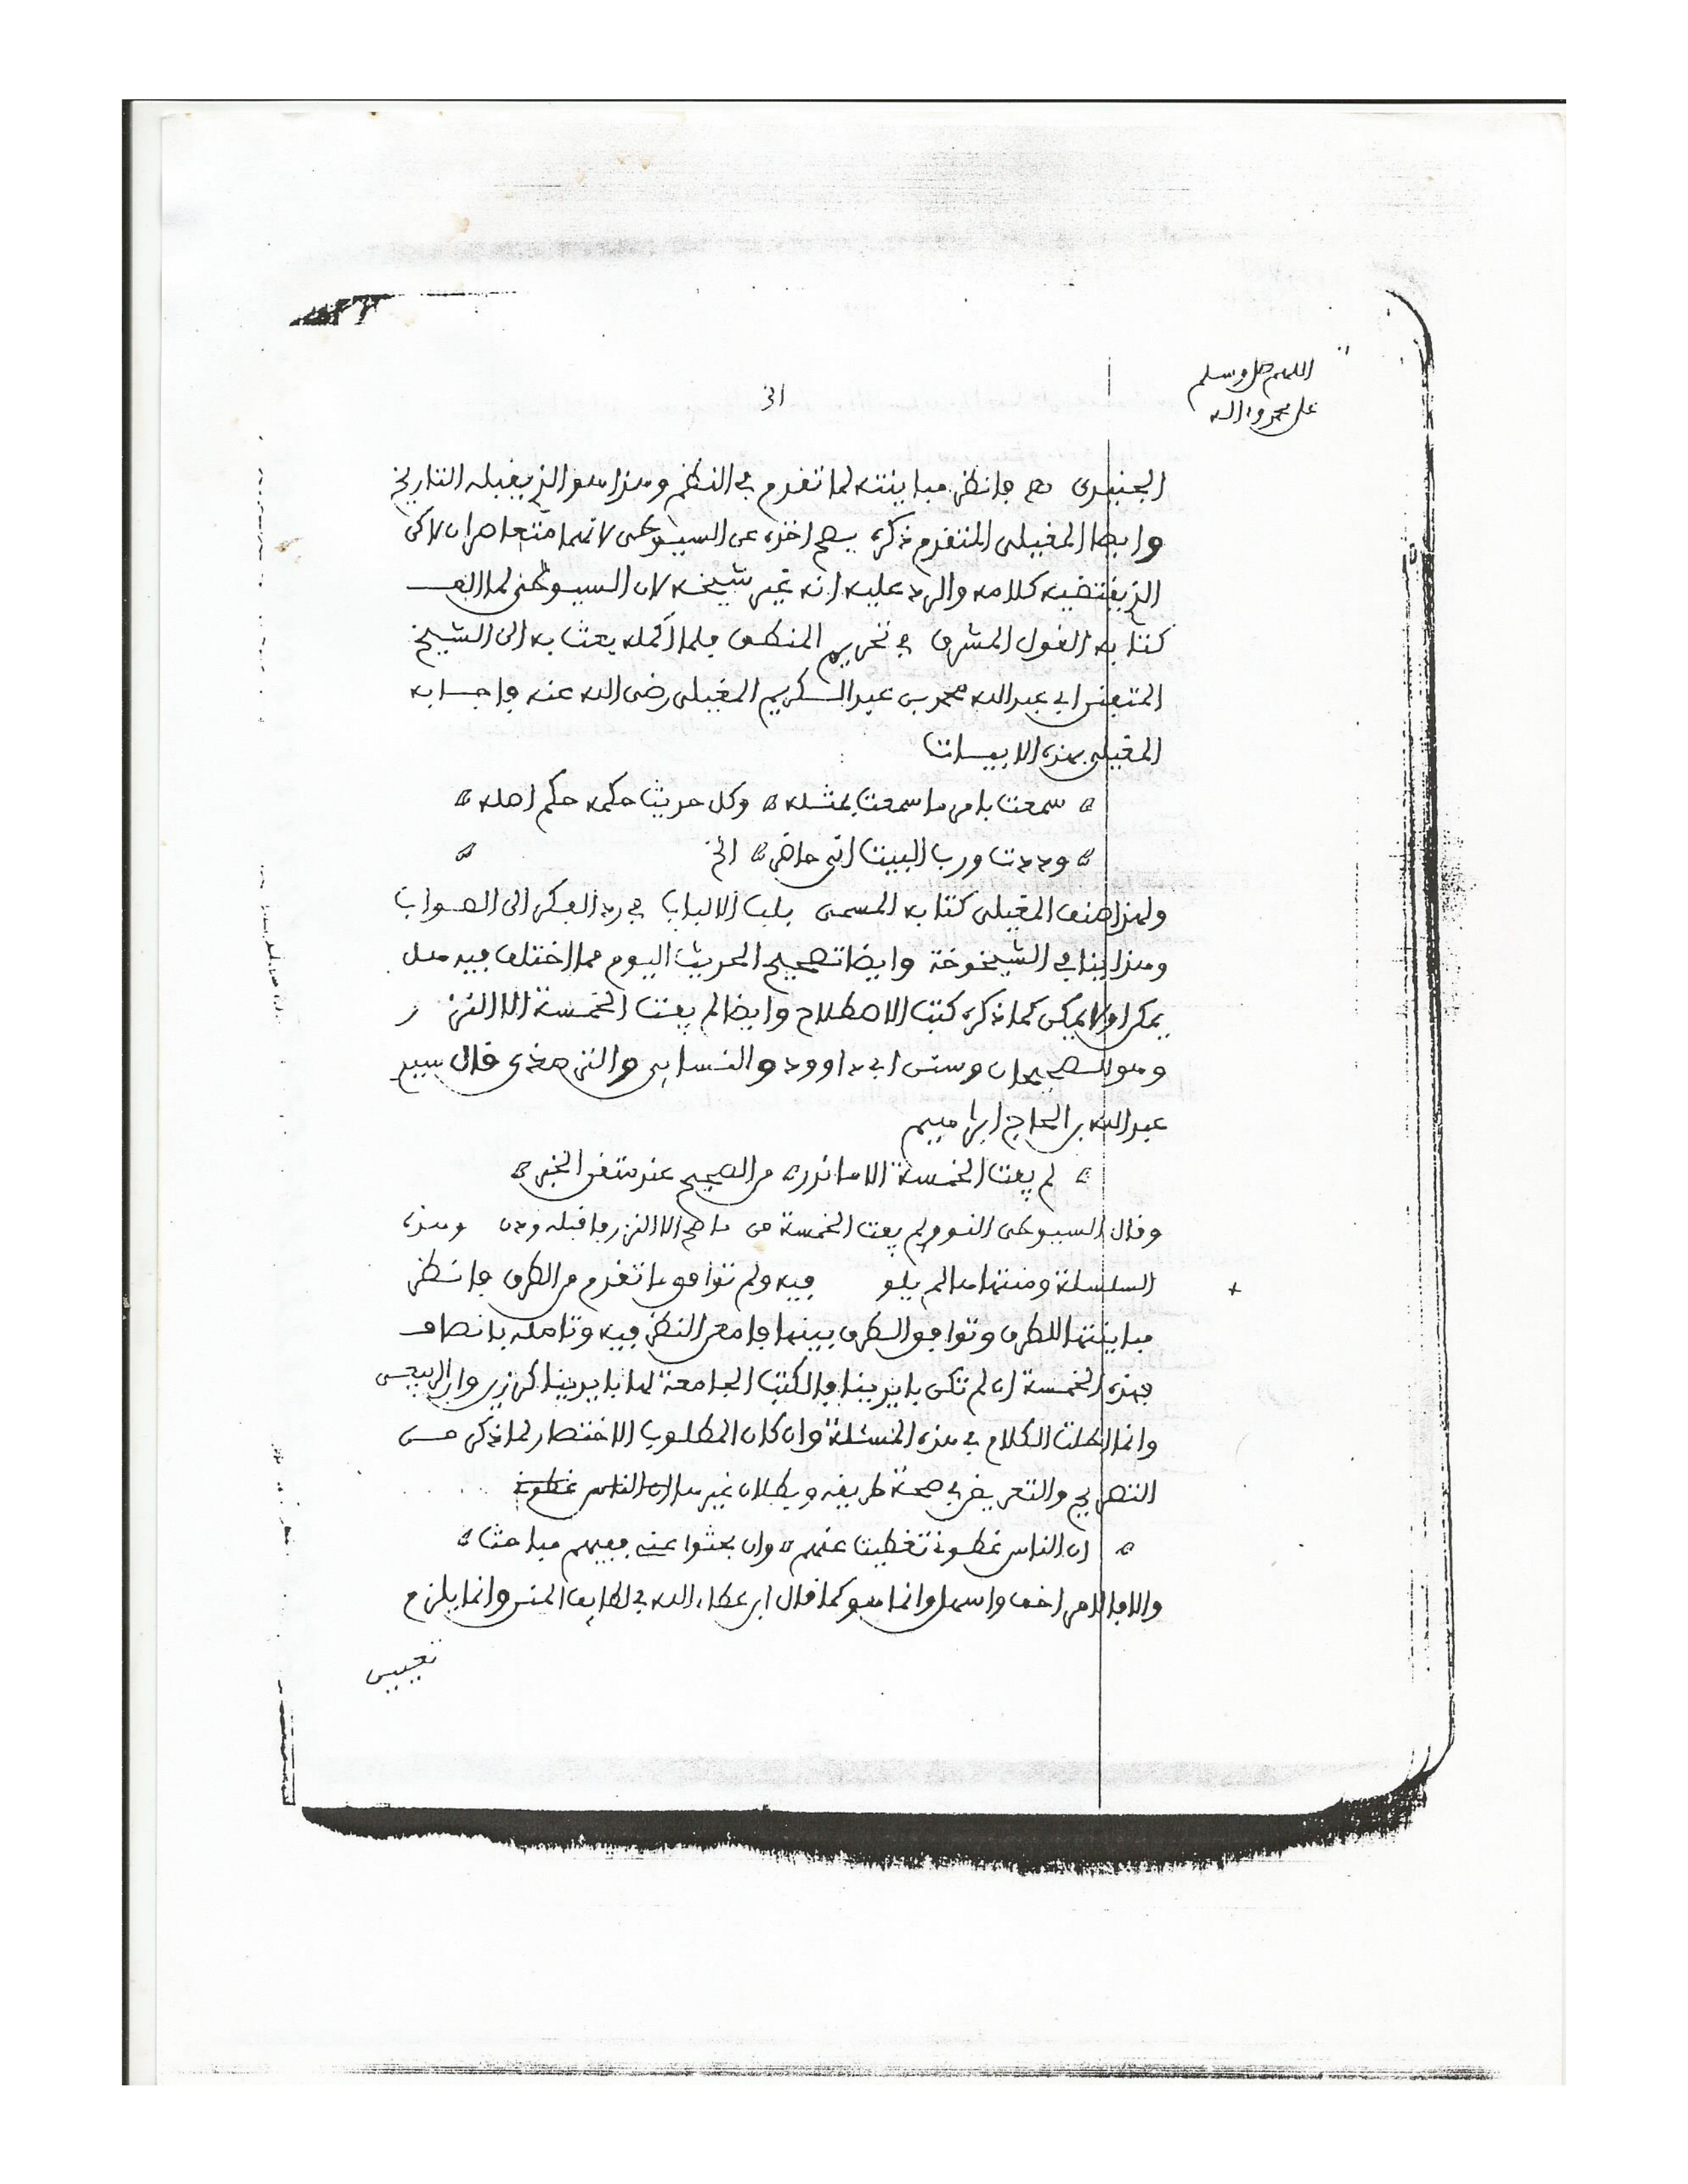 اللهم صل وسلم
على محمد وءاله
الخ
الجنيدى فانظر مباينته لما تقدم في النظم وهذا هو الذي يقبله التاريخ
وايضا المغيلى المتقدم ذكره يصح اخذه عن السيوطى لانهما متعاصران لاكن
الذي يقتضيه كلامه والرد عليه انه غير شيخه لان السيوطى لما الف
كتابه القول المشرق في تحريم المنطق فلما اكمله بعث به الى الشيخ
المتفنن ابي عبد الله محمد بن عبد الكريم المغيلى رضى الله عنه فاجابه
المغيلى بهذه الابيات
سمعت بامر ما سمعت بمثله وكل حديث حكمه حكم اصله
وددت ورب البيت انى حاضر الخ
ولهذا صنف المغيلى كتابه المسمى بلب الالباب في رد الفكر الى الصواب
وهذا ينافي الشيخوخة وايضا تصحيح الحديث اليوم مما اختلف فيه هل
يمكن او لا يمكن كما ذكره كتب الاصطلاح وايضا لم يفت الخمسة الا النزر
وهو الصحيحان وسنن ابي داوود والنسايي والترمذى قال سيد
عبد الله بن الحاج ابراهيم
لم يفت الخمسة الا ما نزر من الصحيح عند متقن الخبر
وقال السيوطى النووي لم يفت الخمسة من ما صح الا النزر فاقبله ودن وهذه
السلسلة ومتنها مما لم يلو فيه ولم توافق ما تقدم من الطرق فانظر
مباينتها للطرق وتوافق الطرق بينها فامعن النظر فيه وتامله بانصاف
فهذه الخمسة ان لم تكن بايدينا فالكتب الجامعة لها بايدينا كرزين وابن الديبع
وانما اطلت الكلام في هذه المسئلة وان كان المطلوب الاختصار لما ذكر من
التصريح والتعريض في صحة طريقه وبطلان غيرها ان الناس غطونى
ان الناس غطونى تغطيت عنهم وان بحثوا عنى ففيهم مباحث
والا فالامر اخف واسهل وانما هو كما قال ابن عطاء الله في لطايف المنن وانما يلزم
تعيين